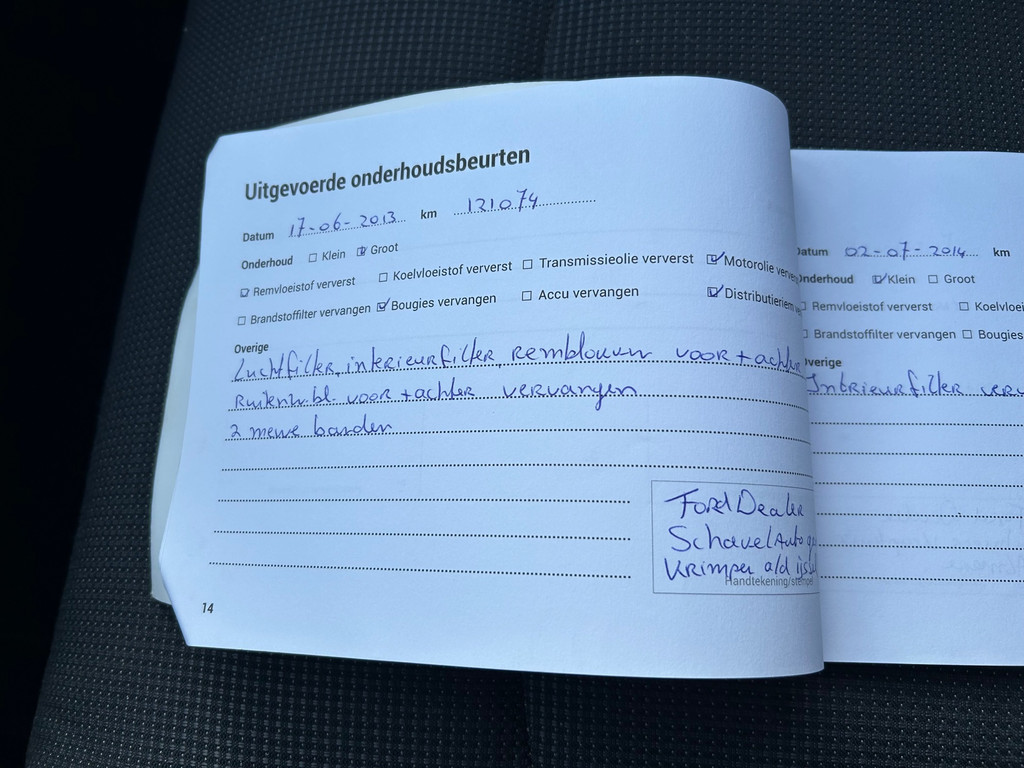 Uitgevoerde onderhoudsbeurten
Datum 17-06-2013 km 121074
Onderhoud Klein Groot
Remvloeistof ververst Koelvloeistof ververst Transmissieolie ververst Motorolie
Brandstoffilter vervangen Bougies vervangen Accu vervangen Distributieriem
Overige
Luchtfilter, interieurfilter, remblokken voor + achter
Ruitenw.bl. voor + achter vervangen
2 nieuwe banden
Ford Dealer
Schavel Auto
Krimpen a/d ijssel
Handtekening/stempel
14
Datum 02-07-2014 km
Onderhoud Klein Groot
Remvloeistof ververst
Brandstoffilter vervangen Bougies
Overige
Interieurfilter